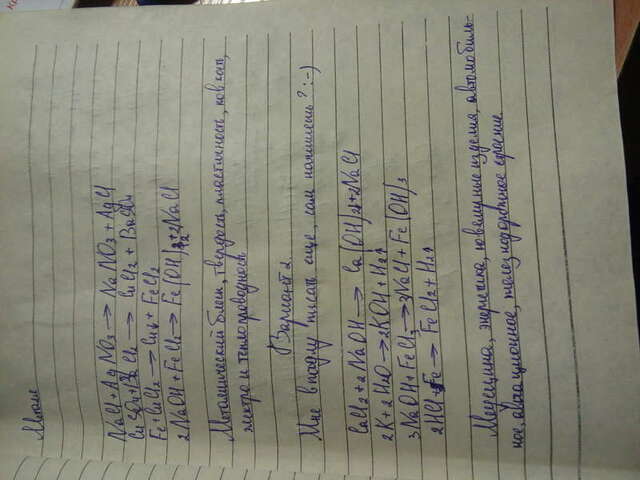 NaCl + AgNO3 → NaNO3 + AgCl
CuSO4 + BaCl2 → CuCl2 + BaSO4
Fe + CuCl2 → Cu↓ + FeCl2
2NaOH + FeCl2 → Fe(OH)2 + 2NaCl
Металлический блеск, твердость, пластичность, ковкость,
электро и теплопроводность
Вариант 2
Мне впадлу писать еще, сам напишешь? :-)
CaCl2 + 2NaOH → Ca(OH)2 + 2NaCl
2K + 2H2O → 2KOH + H2↑
3NaOH + FeCl3 → 3NaCl + Fe(OH)3
2HCl + Fe → FeCl2 + H2↑
Медецина, энергетика, ювелирные изделия, автомобиль-
ное, авиационное,